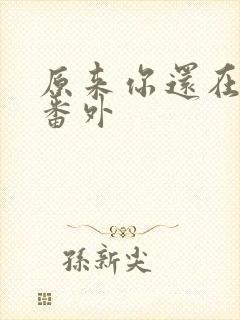 原来你還在
番外
孫新尖